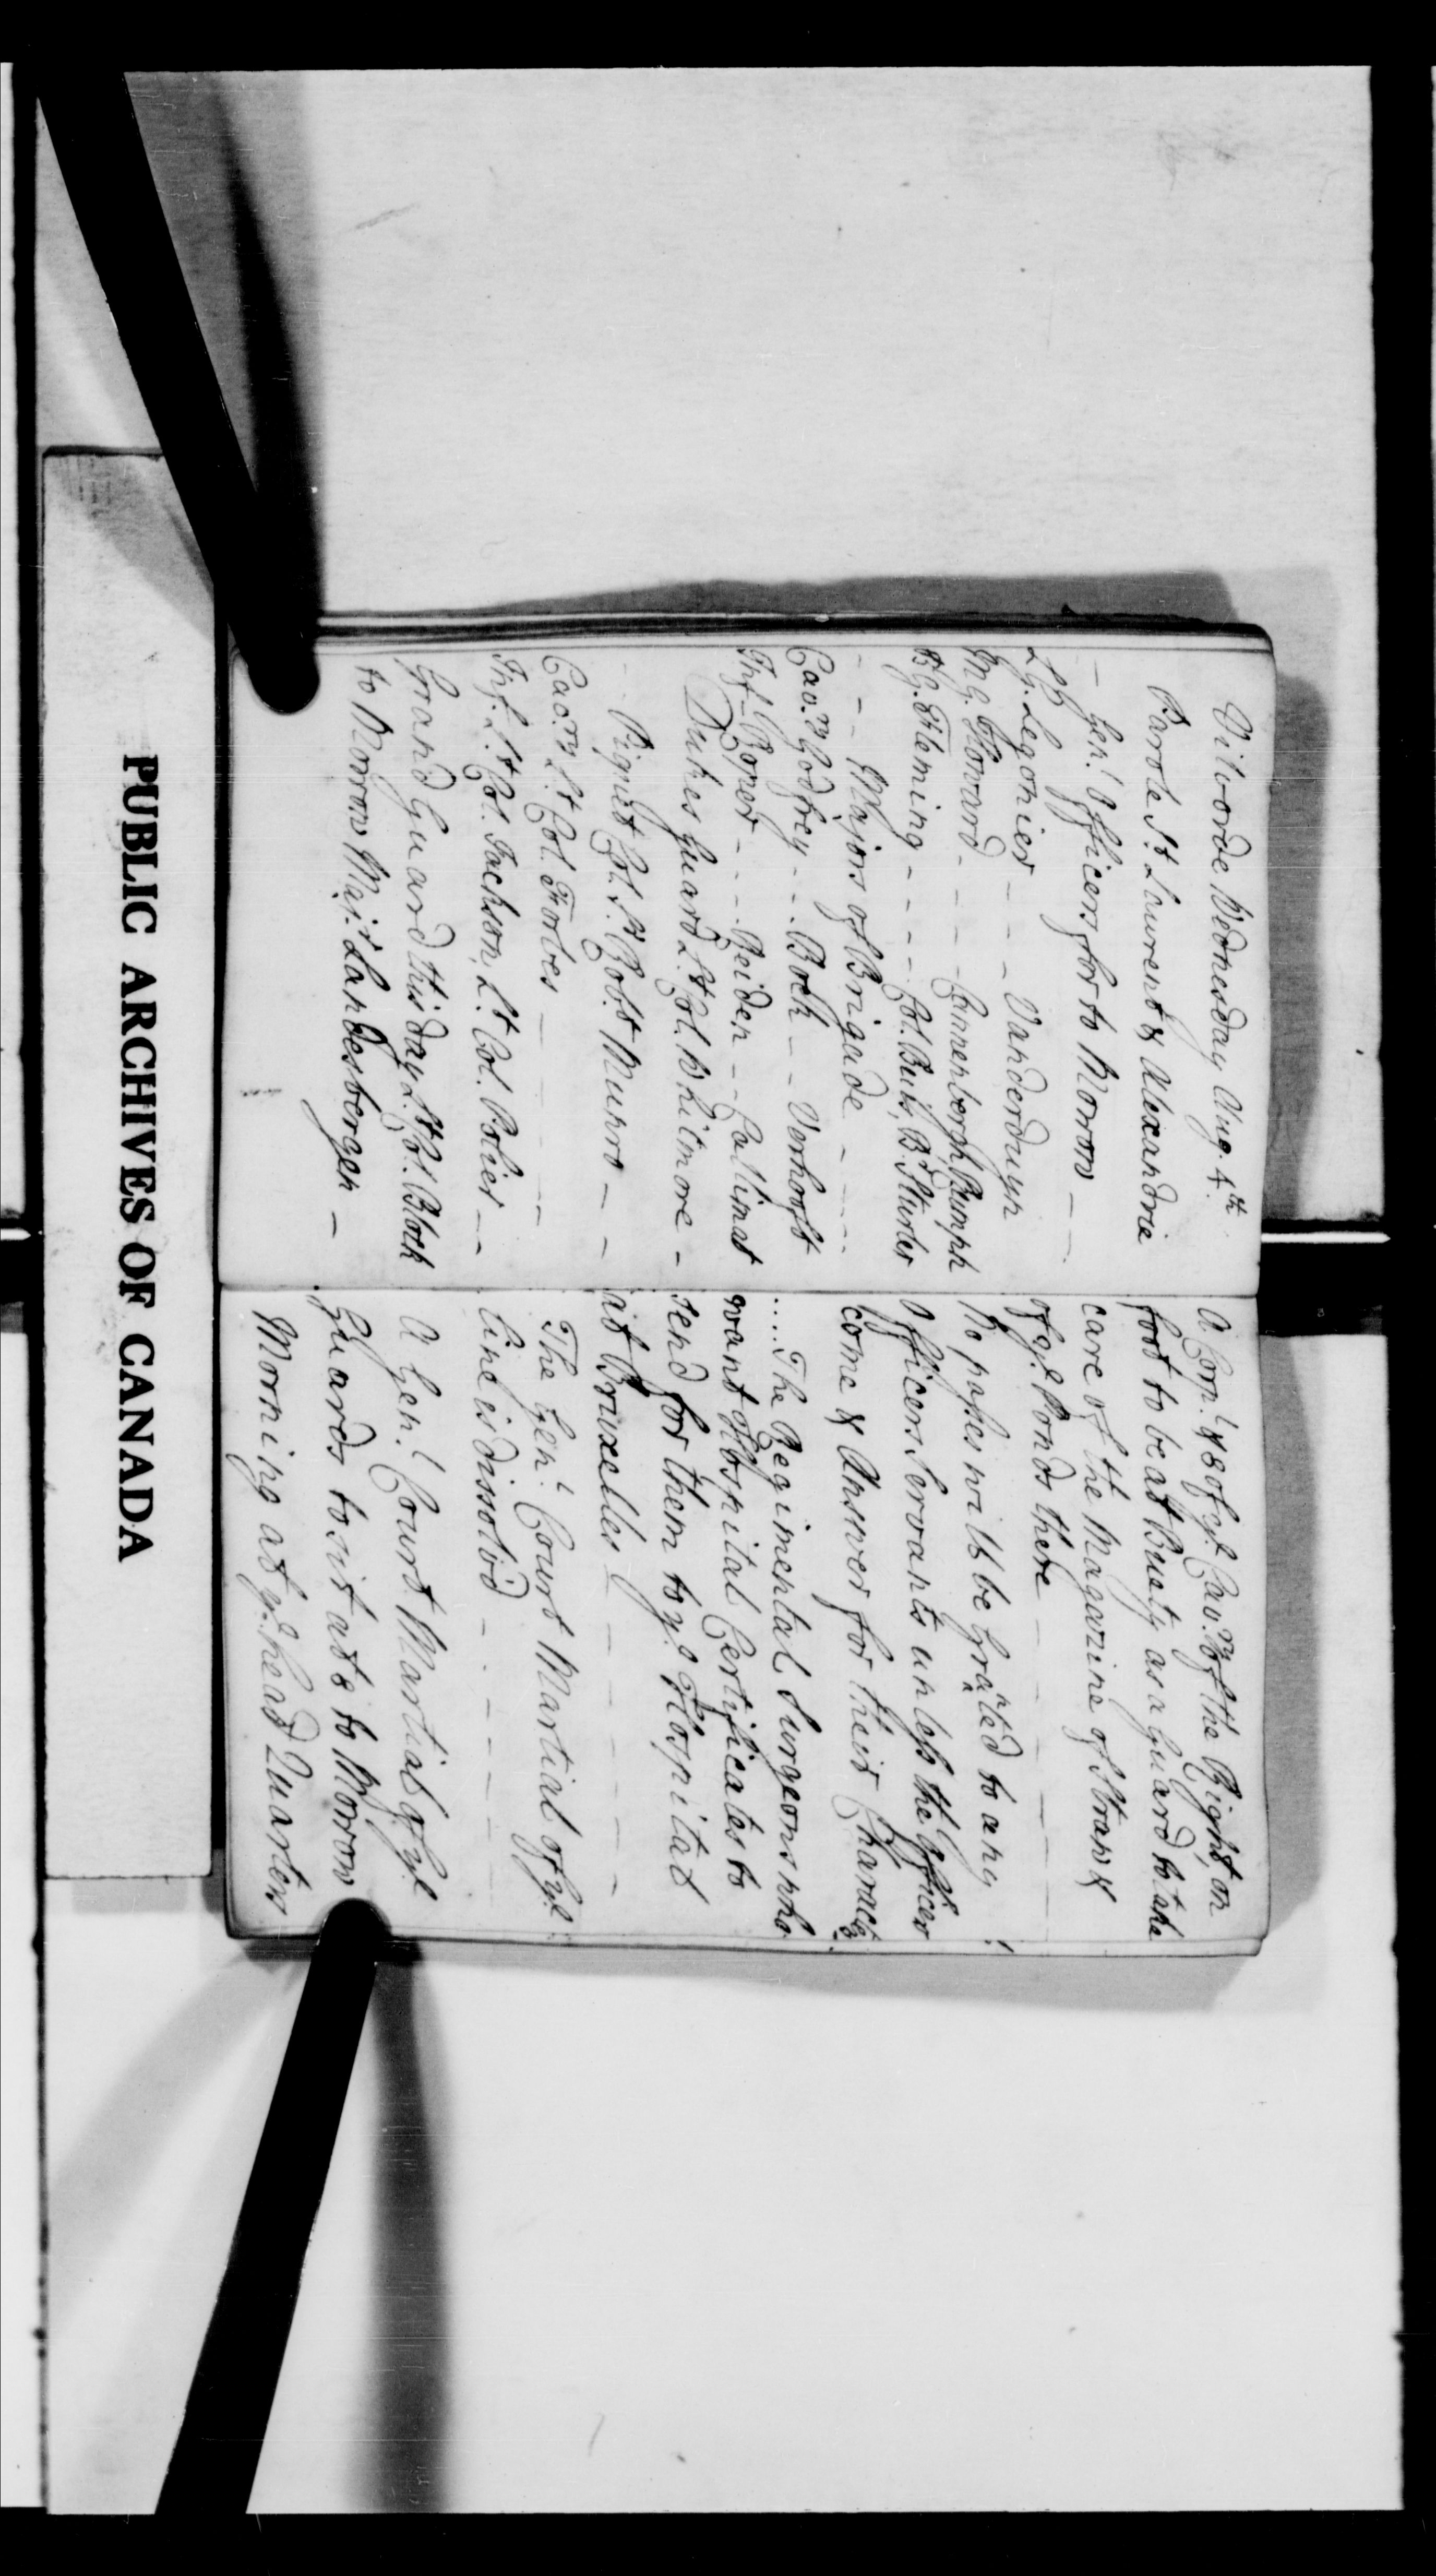 Vilvorde Wednesday Aug. 4th
Parole St. Laurent & Alexandrie
- Gen.l Officers for to Morrow - -
L.G. Legonier - - - Vanderduyn
M.G. Howard - - - Cannenbergh, Bumph
B.G. Fleming - - - - Col. Buis, Bd. Sturler
- - Majors of Brigade - - - - -
Cav.ry Godfrey - - - Bock - - Verhooft
Inf. Roper - - - - Reiden - - Collimat
Dukes Guard Lt. Col. Whitmore -
Piquet Col. Sr. Robt. Munro - -
Cavry Lt. Col. Forbes - - - - - -
Inf. Lt. Col. Jackson, Lt. Col. Polier - -
Grand Guard this day Lt. Col. Block
to Morrow Majr. Landesbergen -
A Corpl. & 8 of ye Cavry of the Right, on
foot to be at Busity as a Guard, to take
care of the Magazine of Straw &
of ye Ponds there - - - - - -
No passes will be Granted to any
Officers Servants unless the Officer
come & Answer for their Character
.... The Regimental Surgeons who
want Hospital Certificates to
send for them to ye Hospital
at Bruxelles - - - - - -
The Genl. Court Martial of ye
Line is dissolv'd - - - - - -
A Genl. Court Martial of ye
Guards to sit at 8 to Morrow
Morning at ye head Quarters
PUBLIC ARCHIVES OF CANADA